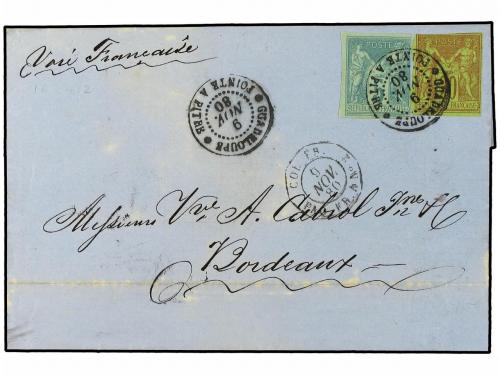 Voie Française
POSTE
POSTE
GUADELOUPE
9
NOV
80
POINTE A PITRE
GUADELOUPE
9
NOV
80
POINTE A PITRE
COL. FR.
9
NOV
80
Messieurs Vve A. Cabrol Jne &
Bordeaux